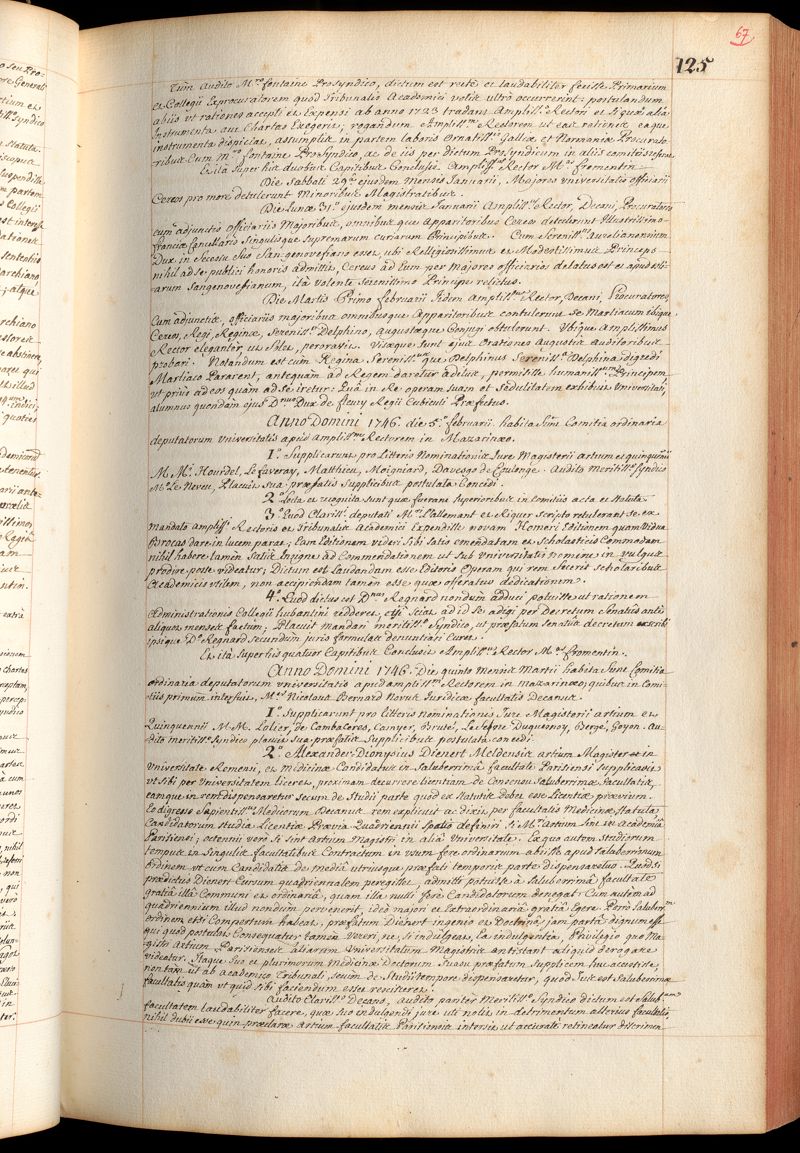 67
125
Tum audito M.ro fontaine Prosyndico, dictum est recte et laudabiliter fecisse Primarium
et Collegii Exprocuratorem quod Tribunalis Academici votis ultro occurrerint: postulandum
ab iis ut rationes accepti et Expensi ab anno 1723 tradant Ampliss.o Rectori et si quae alia
Instrumenta aut Chartas Exegerit; rogandum Ampliss.um Rectorem ut eas rationes eaque
instrumenta dispiciat, assumptis in partem laboris Ornatiss.is Galliae et Normaniae Procurato-
ribus Cum M.ro fontaine ProSyndico, ac de iis per dictum ProSyndicum in aliis comitiis
Et ita super his duobus Capitibus Conclusit Ampliss.us Rector M.r fromentin.
Die Sabbati 29.a ejusdem Mensis Januarii, Majores Universitatis officiarii
Cereos pro more detulerunt Minoribus Magistratibus.
Die Lunae 31.a ejusdem mensis Januarii Ampliss.us Rector, Decani, Procuratores
cum adjunctis officiariis Majoribus, omnibusque Apparitoribus Cereos detulerunt Illustrissimo
franciae Cancellario Singulisque Supremarum curiarum Principibus. Cum Sereniss.us Aurelianensium
Dux in Secessu Suo San-genovefiano esset, ubi Religiosissimus et Modestissimus Princeps
nihil ad se publici honoris admittit, Cereus ad Eum per majores officiarios delatus est et apud
arum Sangenovefianum, ita volente Serenissimo Principe relictus.
Die Martis Primo februarii Iidem Ampliss.us Rector, Decani, Procuratores,
Cum adjunctis, officiariis majoribus omnibusque Apparitoribus contulerunt se Martiacum ibique
Cereos, Regi, Reginae, Sereniss.o Delphino, Augustaeque Conjugi obtulerunt. Ubique Amplissimus
Rector eleganter, ut Solet, peroravit. Visaeque Sunt ejus Orationes Augustis Auditoribus
probari. Notandum est cum Regina Sereniss.usque Delphinus Sereniss.a Delphina digredi
Martiaco Pararent, antequam ad Regem daretur aditus, permisisse humaniss.um Principem
ut prius ad eos quam ad se iretur: Quâ in Re operam suam et Sedulitatem exhibuit Universitati,
alumnus quondam ejus D.nus Dux de fleury Regii Cubiculi Praefectus.
Anno Domini 1746. die 5.a februarii. habita Sunt Comitia ordinaria
deputatorum Universitatis apud Ampliss.um Rectorem in Mazarinaeo.
1.o Supplicarunt pro Litteris Nominationis Jure Magisterii artium et quinquennii
M.M. Hourdel, Lefaveray, Matthieu, Moignard, Davesgo de Coulonge. Audito Meritiss.o Syndico
M.ro Le Neveu, Placuit sua praefatis Supplicibus postulata Concedi.
2.o Lecta et recognita sunt quae fuerant Superioribus in Comitiis acta et Statuta.
3.o Quod Clariss.i deputati M.ri Lallemant et Riquer Scripto retulerant se ex
mandato ampliss.i Rectoris et Tribunalis Academici Expendisse novam Homeri Editionem quam Viduа
Brocas dare in lucem parat; Eam Editionem videri Sibi Satis emendatam et Scholasticis Commodam
nihil habere tamen Satis Insigne ad Commendationem ut sub Universitatis nomine in vulgus
prodire posse videatur; Dictum est Laudandam esse Editoris Operam qui rem fecerit scholaribus
Academicis utilem, non accipiendam tamen esse quae offeratur dedicationem.
4.o Quod dictus est D.nus Regnard nondum adduci potuisse ut rationem
Administrationis Collegii hubantini redderet, etsi Sciat ad id Se adigi per Decretum Senatus antè
aliquot menses factum; Placuit mandari meritiss.o Syndico, ut praefatum Senatus decretum exscribi
ipsique D.o Regnard secundum juris formulas denuntiari Curet.
Et ita Super his quatuor Capitibus Conclusit Ampliss.us Rector M.r fromentin.
Anno Domini 1746. Die quinto Mensis Martii habita Sunt Comitia
ordinaria deputatorum universitatis apud ampliss.um Rectorem in mazarinaeo; quibus in Comi-
tiis primum interfuit, M.er Nicolaus Bernard Novus Juridicae facultatis Decanus.
1.o Supplicarunt pro Litteris nominationis Jure Magisterii artium et
Quinquennii M.M. Lolier, De Cambaceres, Camyer, Bruté, Lefebvre Duquesnoy, Bergé, Goyon. Au-
dito meritiss.o Syndico placuit sua praefatis Supplicibus postulata concedi.
2.o Alexander-Dionysius Dienert Meldensis artium Magister in
Universitate Remensi, et Medicinae Candidatus in Saluberrimâ facultate Parisiensi supplicavit
ut Sibi per Universitatem liceret, proximam decurrere licentiam de Consensu Saluberrimae facultatis,
eamque in rem dispensaretur secum de Studii parte quod ex Statutis debet esse Licentiae praevium.
Eo digresso Sapientiss.us Medicorum Decanus rem explicuit ac dixit per facultatis Medicinae Statuta
Candidatorum studia Licentiae Praevia Quadriennii Spatio definiri Si M.ri Artium Sint in Academiâ
Parisiensi; octennii verò Si sint Artium Magistri in aliâ Universitate. Ex quo autem Studiorum
tempus in Singulis facultatibus Contractum in usum fere ordinarium abiisse apud Saluberrimum
Ordinem ut cum Candidatis de mediâ utriusque praefati temporis parte dispensaretur. Quod si
praedictus Dienert Cursum quadriennalem peregisset, admitti potuisse à Saluberrimâ facultate
gratiâ illâ Communi et ordinariâ, quam illa nulli fere Candidatorum denegat: Cum autem ad
quadriennium illud nondum pervenerit, ideò majori et Extraordinariâ gratiâ Egere. Porrò Saluberrim.
ordinem etsi Compertum habeat, praefatum Dienert ingenio et Doctrinâ jam partâ dignum esse
qui quod postulat Consequatur tamen Vereri, ne, si indulgeat, Ea indulgentia, Privilegio quo Ma-
gistri Artium Parisienses aliarum Universitatum Magistris antistant aliquid derogare
videatur. Itaque Suo et plurimorum Medicinae Doctorum Suasu praefatum Supplicem huc accessisse,
non tam ut ab academico Tribunali, Secum de Studii tempore dispensaretur, quod Jus est Saluberrimae
facultatis quàm ut quid sibi faciendum esset resciscret.
Audito Clariss.o Decano, audito pariter Meritiss.o Syndico dictum est Salub.am
facultatem laudabiliter facere, quae suo indulgendi jure uti nolit in detrimentum alterius facultatis,
nihil dubii esse quin praeclarae Artium facultatis Parisiensis intersit ut accuratè retineatur discrimen